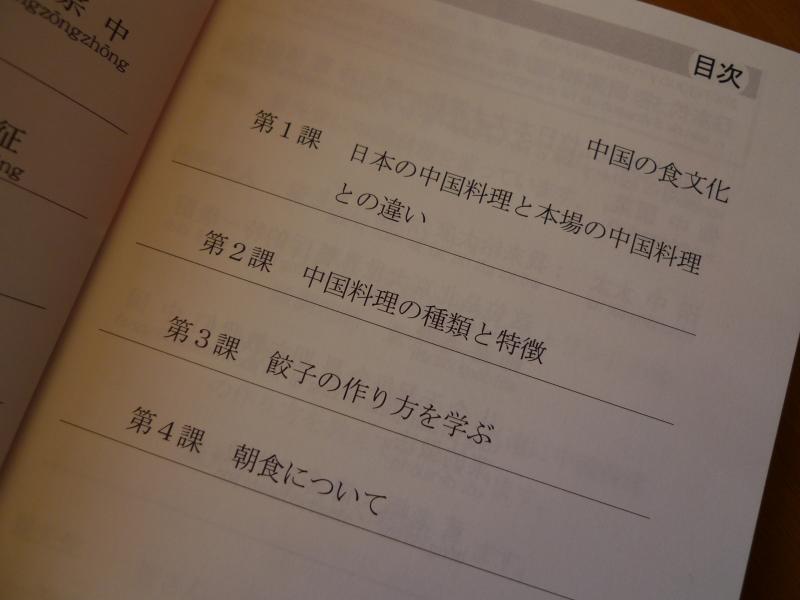 中
ngzōngzhōng
征
ng
目次
中国の食文化
第1課 日本の中国料理と本場の中国料理
との違い
第2課 中国料理の種類と特徴
第3課 餃子の作り方を学ぶ
第4課 朝食について